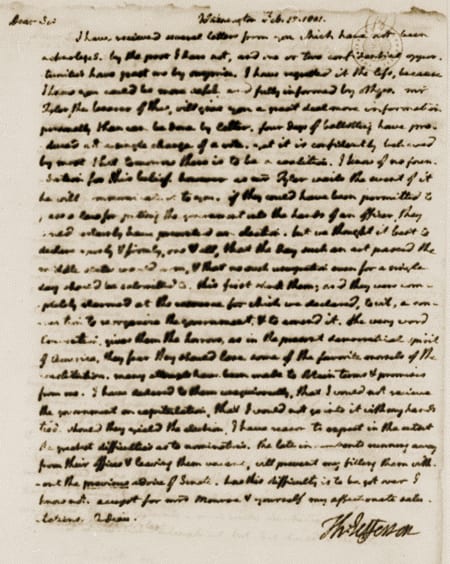 Dear Sir Washington Feb. 15. 1801.
I have received several letters from you which have not been
acknoleged. by the post I dare not, and one or two confidential oppor-
tunities have passed me by surprise. I have regretted it the less, because
I know you could be more safely and fully informed by others. mr
Tyler the bearer of this, will give you a great deal more information
personally than can be done by letter. four days of balloting have pro-
duced not a single change of a vote. yet it is confidently believed
by most that tomorrow there is to be a coalition. I know of no foun-
dation for this belief. however as mr Tyler waits the event of it
he will communicate it to you. if they could have been permitted to
pass a law for putting the government into the hands of an officer, they
would certainly have prevented an election. but we thought it best to
declare openly & firmly, one & all, that the day such an act passed the
middle states would arm, & that no such usurpation even for a single
day should be submitted to. this first shook them; and they were com-
pletely alarmed at the resource for which we declared, to wit, a con-
vention to reorganize the government, & to amend it. the very word
Convention, gives them the horrors, as in the present democratical spirit
of America, they fear they should lose some of the favorite morsels of the
constitution. many attempts have been made to obtain terms & promises
from me. I have declared to them unequivocally, that I would not recieve
the government on capitulation, that I would not go into it with my hands
tied. should they yield the election, I have reason to expect in the outset
the greatest difficulties as to nominations. the late incumbents running away
from their offices & leaving them vacant, will prevent my filling them with-
out the previous advice of Senate. how this difficulty is to be got over I
know not. accept for mrs Monroe & yourself my affectionate salu-
tations. Adieu.
Th: Jefferson